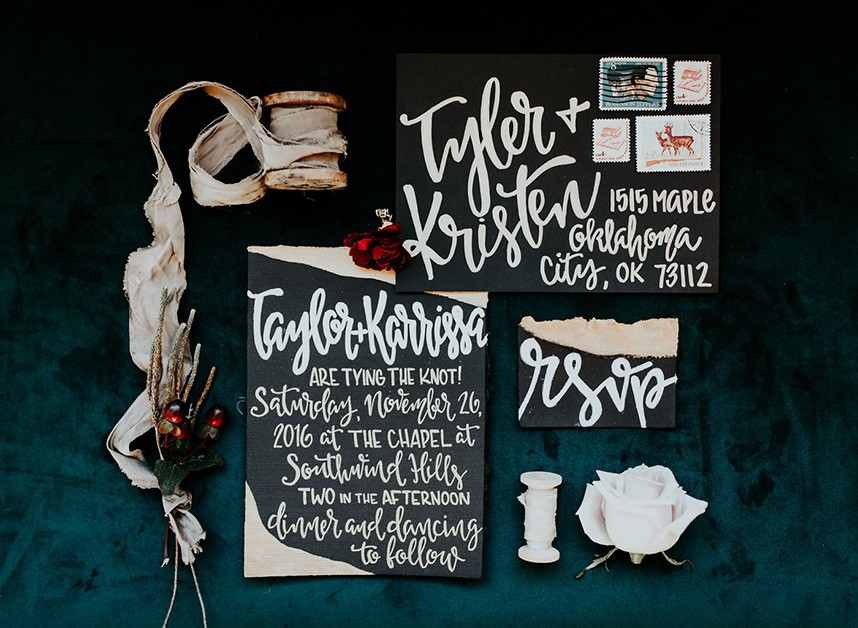 Tyler +
Kristen
1515 MAPLE
Oklahoma
City, OK 73112
Taylor + Karrissa
ARE TYING THE KNOT!
Saturday, November 26,
2016 at THE CHAPEL at
Southwind Hills
TWO IN THE AFTERNOON
dinner and dancing
to follow
rsvp